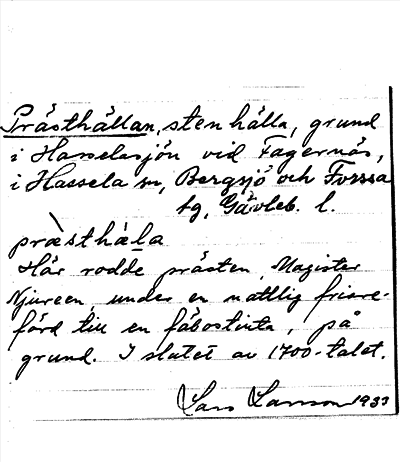 Prästhällan, sten hälla, grund
i Hasselasjön vid Fagernäs,
i Hassela sn, Bergsjö och Forssa
tg, Gävleb. l.
præsthàla
Här rodde prästen, Magister
Njureen, under en nattlig friare-
färd till en fäbostinta, på
grund. I slutet av 1700-talet.
Lars Larsson 1933